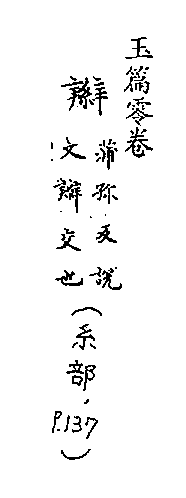 玉篇零卷
辮
蒲殄反說
文辮交也
(系部,P.137)